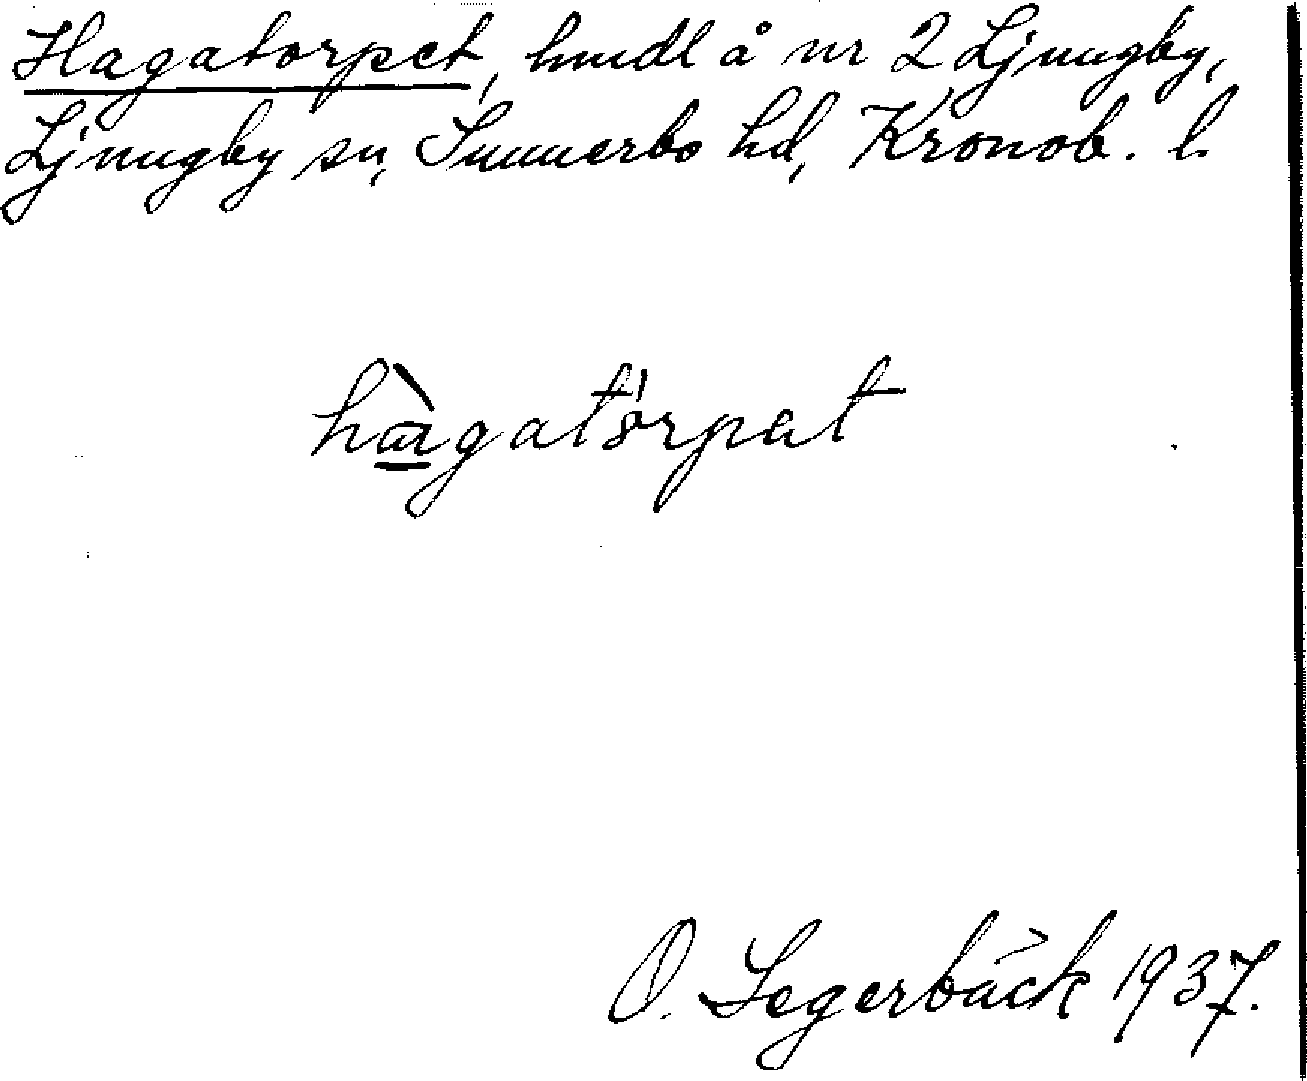 Hagatorpet, hmdl å nr 2 Ljungby,
Ljungby sn, Sunnerbo hd, Kronob. l.
hàgatǿrpat
O. Segerbäck 1937.